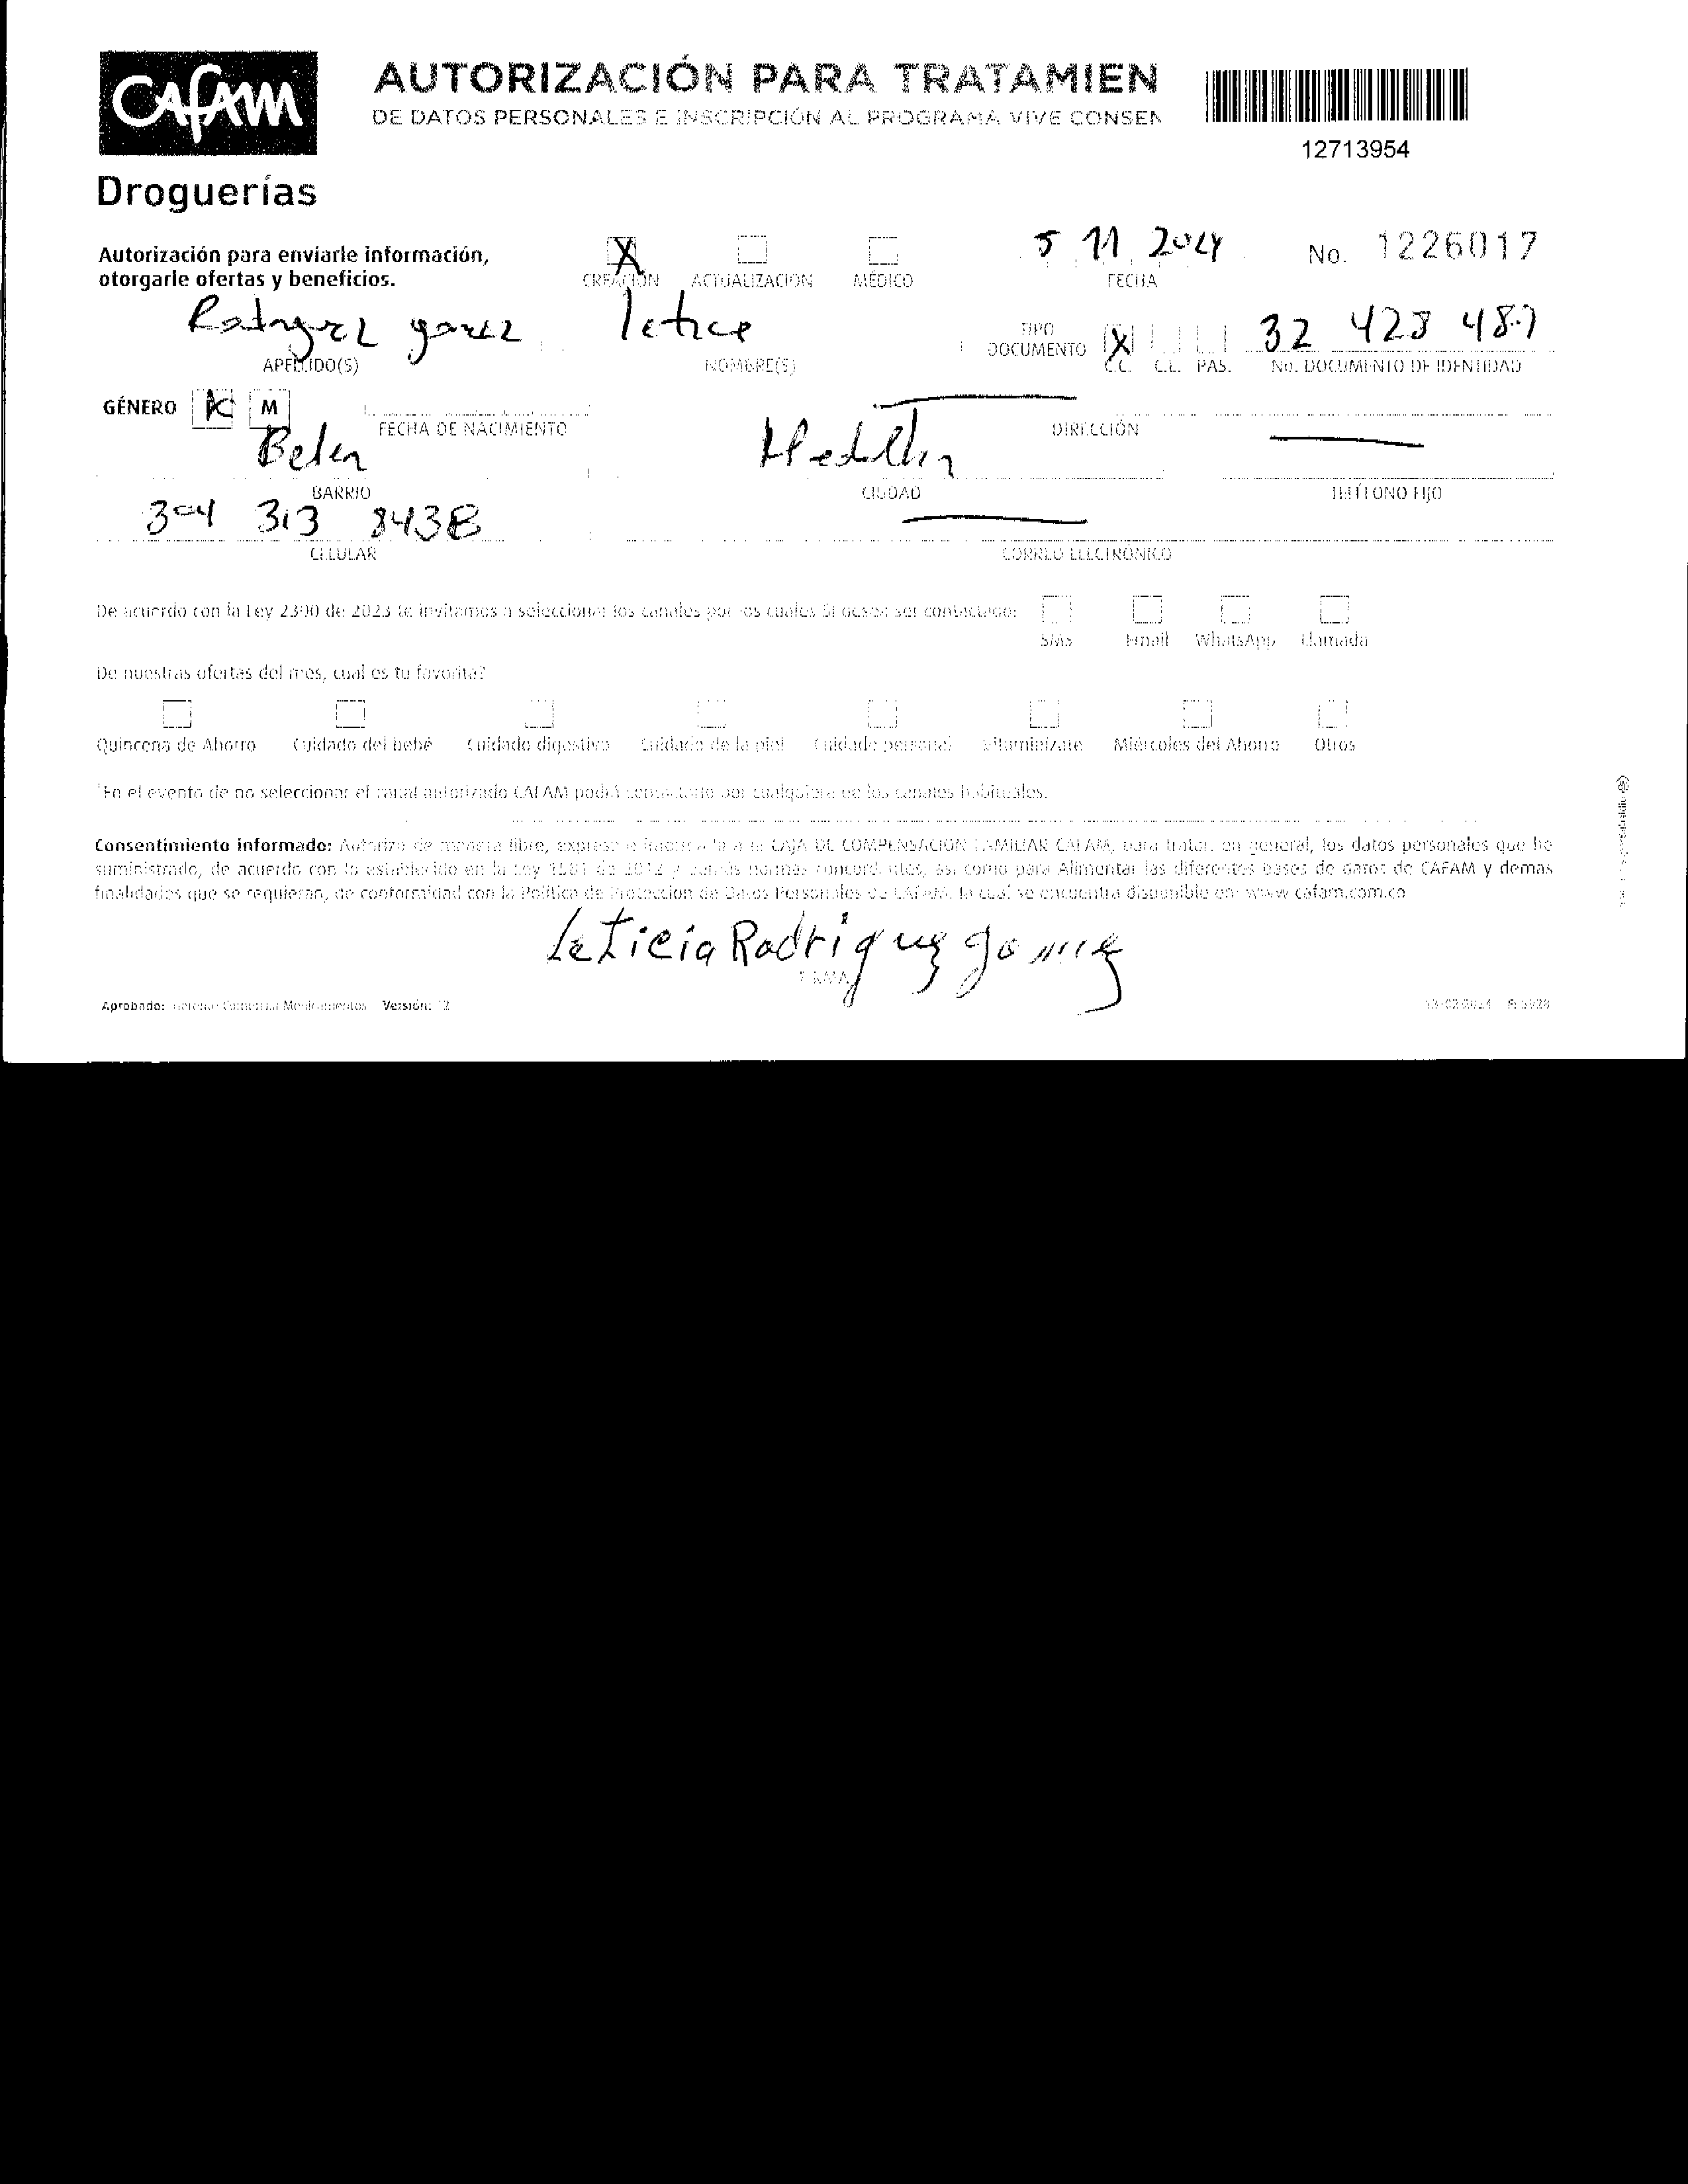 CAFAM
Droguerías
AUTORIZACIÓN PARA TRATAMIEN
DE DATOS PERSONALES E INSCRIPCIÓN AL PROGRAMA VIVE CONSEN
12713954
Autorización para enviarle información,
otorgarle ofertas y beneficios.
X
CREACIÓN ACTUALIZACION MÉDICO
5 11 2024
FECHA
No. 1226017
Rodriguez gomez
APELLIDO(S)
NOMBRE(S)
TIPO
DOCUMENTO
X
C.C. C.E. PAS.
32 423 487
No. DOCUMENTO DE IDENTIDAD
GÉNERO M
FECHA DE NACIMIENTO
DIRECCIÓN
Belen
BARRIO
Medellin
CIUDAD
TELÉFONO FIJO
304 313 8438
CELULAR
CORREO ELECTRÓNICO
De acuerdo con la Ley 2300 de 2023 te invitamos a seleccionar los canales por los cuales SI desea ser contactado:
SMS Email WhatsApp Llamada
De nuestras ofertas del mes, cual es tu favorita?
Quincena de Ahorro Cuidado del bebé Cuidado digestivo Cuidado de la piel Cuidado personal Vitaminízate Miércoles del Ahorro Otros
*En el evento de no seleccionar el canal autorizado CAFAM podrá contactarlo por cualquiera de los canales habituales.
Consentimiento informado: Autorizo de manera libre, expresa e a la CAJA DE COMPENSACIÓN FAMILIAR CAFAM, para tratar, en general, los datos personales que he
suministrado, de acuerdo con lo establecido en la Ley 1581 de 2012 y demás normas concordantes, así como para Alimentar las diferentes bases de datos de CAFAM y demas
finalidades que se requieran, de conformidad con la Política de Protección de Datos Personales de CAFAM, la cual se encuentra disponible en: www.cafam.com.co
Leticia Rodriguez gomez
FIRMA
Aprobado: Gerente Comercial Medicamentos Versión: 12